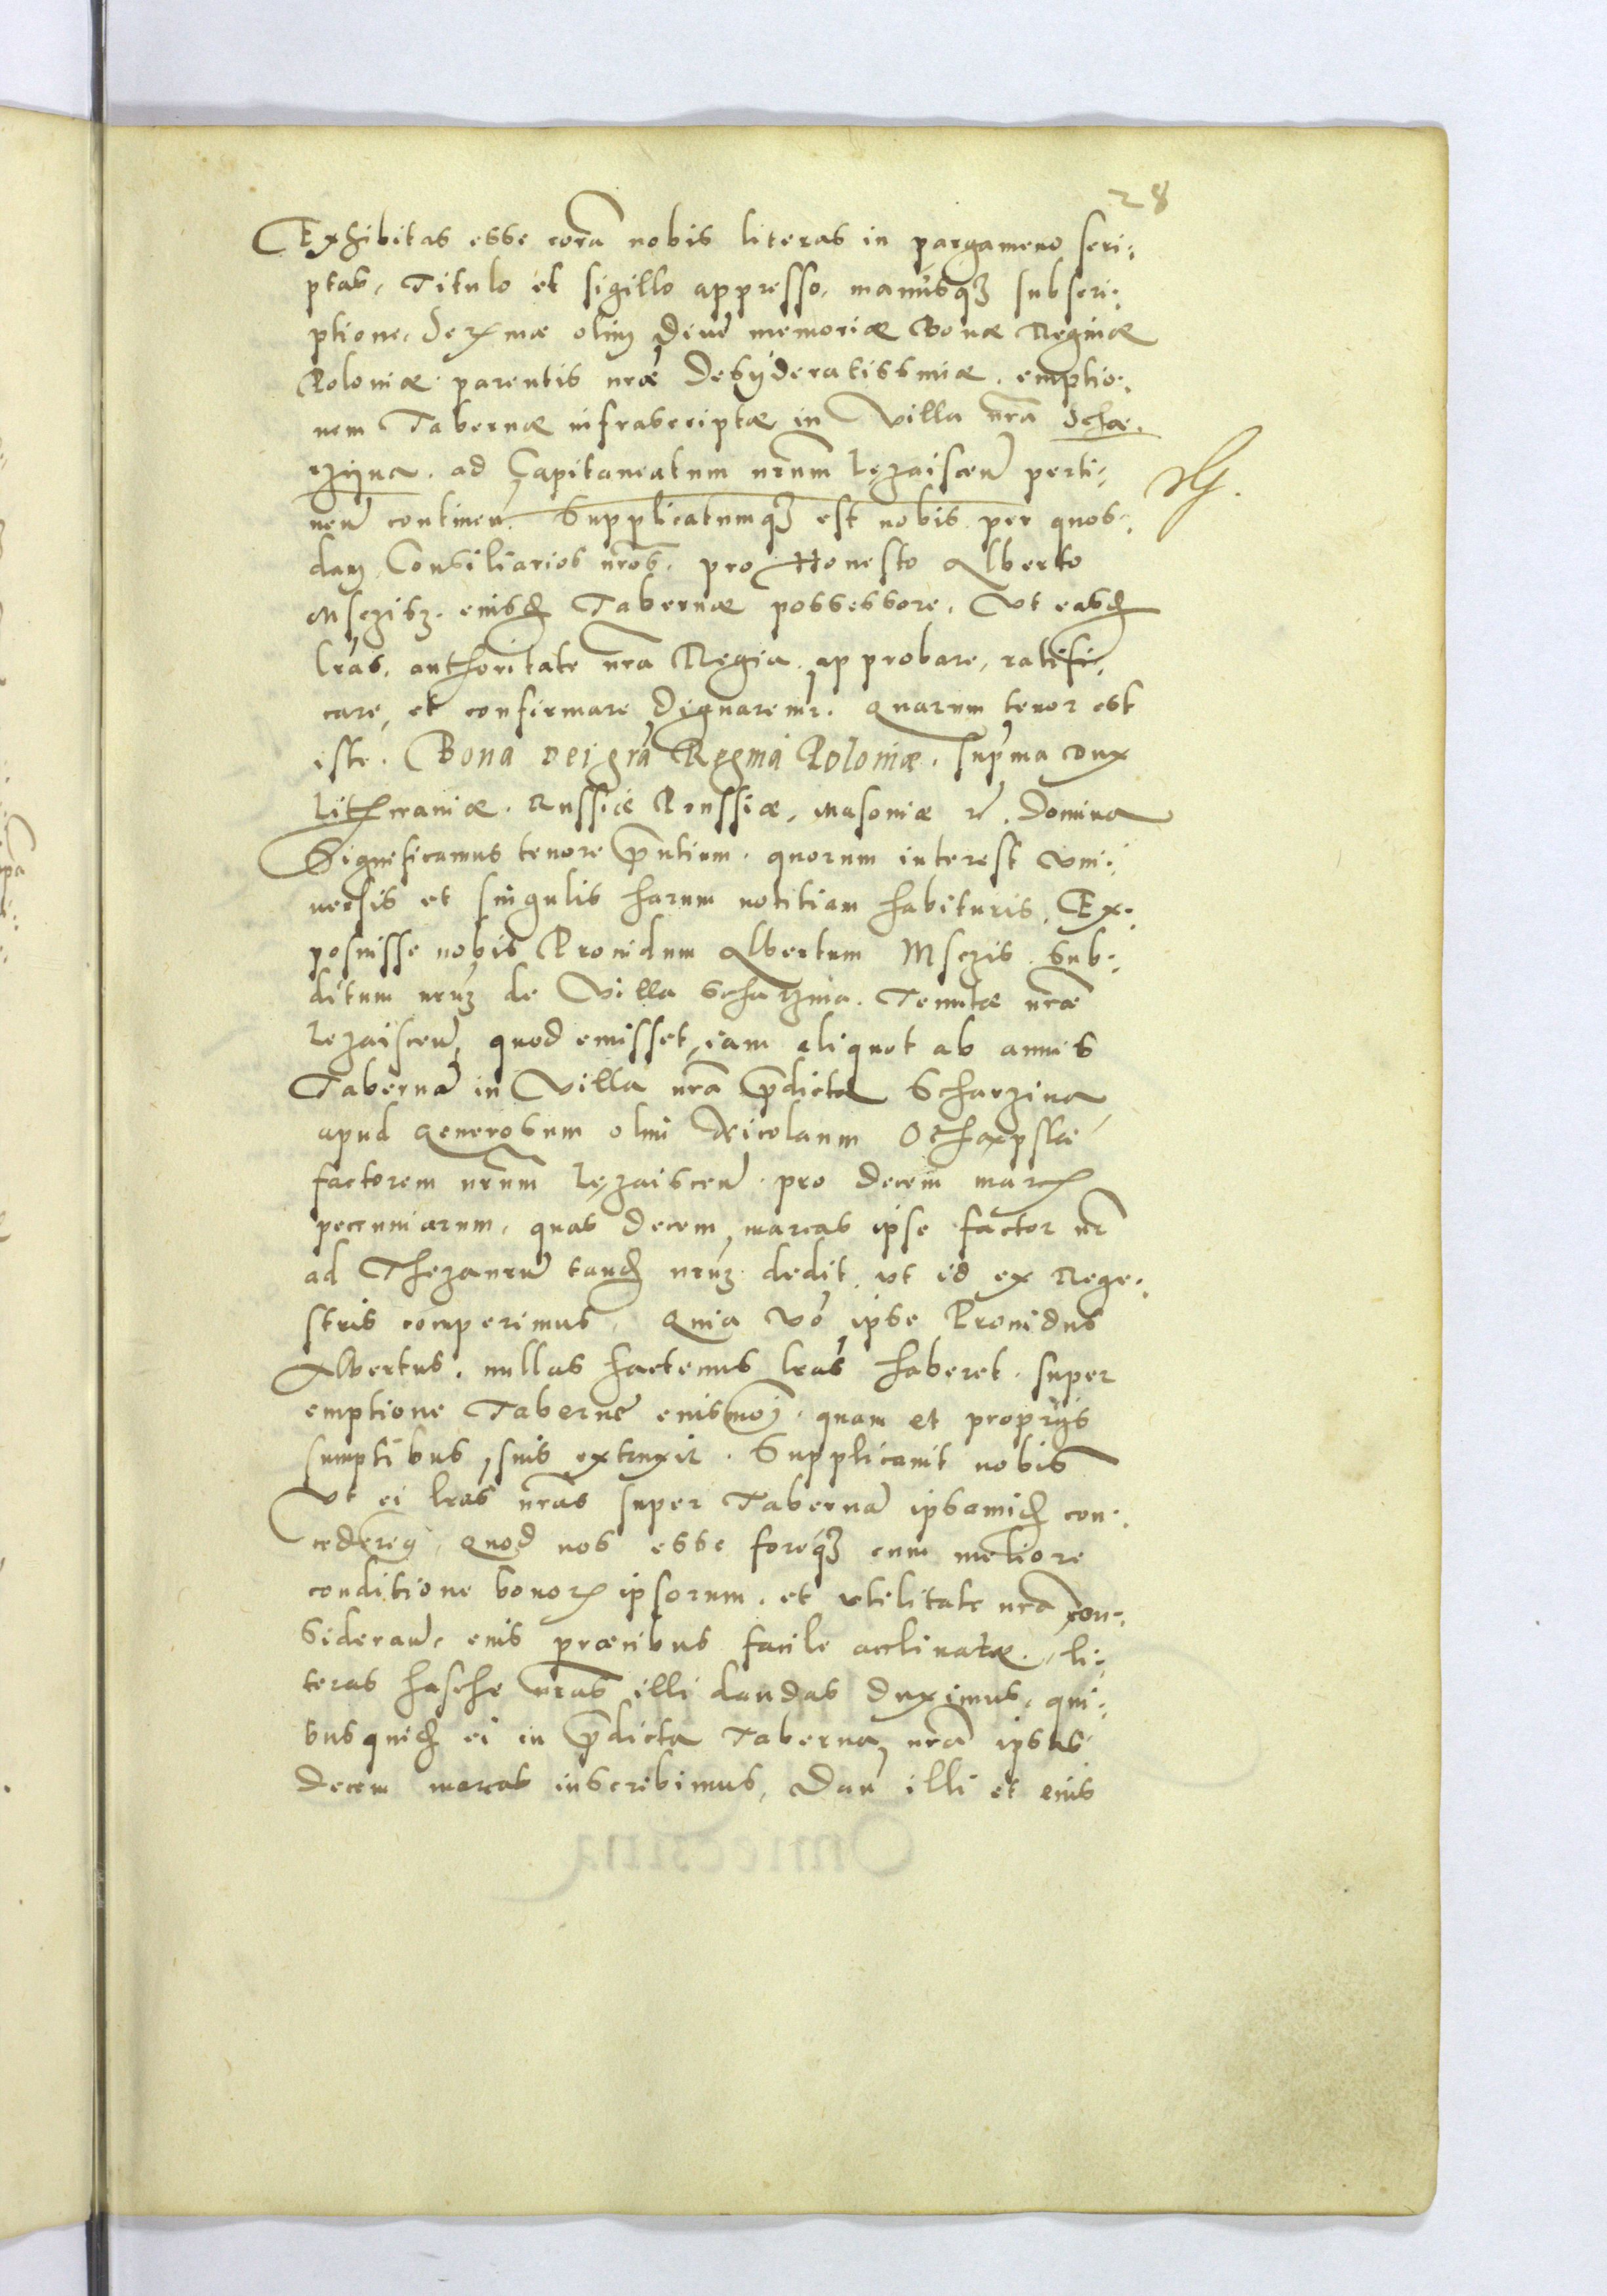 28
Exhibitas esse corā nobis literas in pargameno scri:
ptas, Titulo et sigillo appresso, manusqʒ subscri:
ptione, Serꝫmæ olim Diuę memoriæ Bonæ Reginæ
Poloniæ parentis nræ Desyderatissimæ, emptio:
nem Tabernæ infrascriptæ in Villa nrā Schæ:
rzyna. ad Capitaneatum nrūm Lezaiscen̄ perti:
nen̄ continen̄. Supplicatumqʒ est nobis per quos:
dam Consiliarios nrōs. pro Honesto Alberto
Msczisz. eiusd̄ Tabernæ possessore, Vt easd̄
lrās, authoritate nrā Regia approbare, ratifi:
care, et confirmare Dignaremr. Quarum tenor est
iste. Bona Dei grā Regina Poloniæ. supma Dux
Lithwaniæ. Russiæ Prussiæ, Masoniæ zc̄. Domina
Significamus tenore pn̄tium. quorum interest Vni:
uersis et singulis harum notitiam habituris, Ex:
posuisse nobis Prouidum Albertum Msczis. Sub:
ditum nrūm de Villa Scharzina. Tenutæ nræ
Lezaiscen̄, quod emisset, iam aliquot ab annis
Tabernā in Villa nrā p̄dicta Scharzina
apud Generosum olim Nicolaum
factorem nrūm Lezaiscen̄. pro decem marcꝫ
peccuniarum, quas decem marcas ipse factor nr̄
ad Thezaurū tand̄ nrūm dedit, vt id ex Rege:
stris comperimus, Quia vō ipse Prouidus
Albertus. nullas hactenus lrās haberet. super
emptione Tabernę eiusmōi. quam et proprijs
sumptibus, suis extruxit. Supplicauit nobis
Vt ei lrās nrās super Tabernā ipsamid̄ con:
cederem, Quod nos esse foreqʒ cum meliore
conditione bonorꝫ ipsorum. et vtilitate nrā con:
sideran̄, eius præcibus facile acclinatæ, li:
teras hasche nrās illi dandas duximus, qui:
busquid̄ ei in p̄dicta Taberna nrā ipsas
decem marcas inscribimus, Dan̄ illi et eius